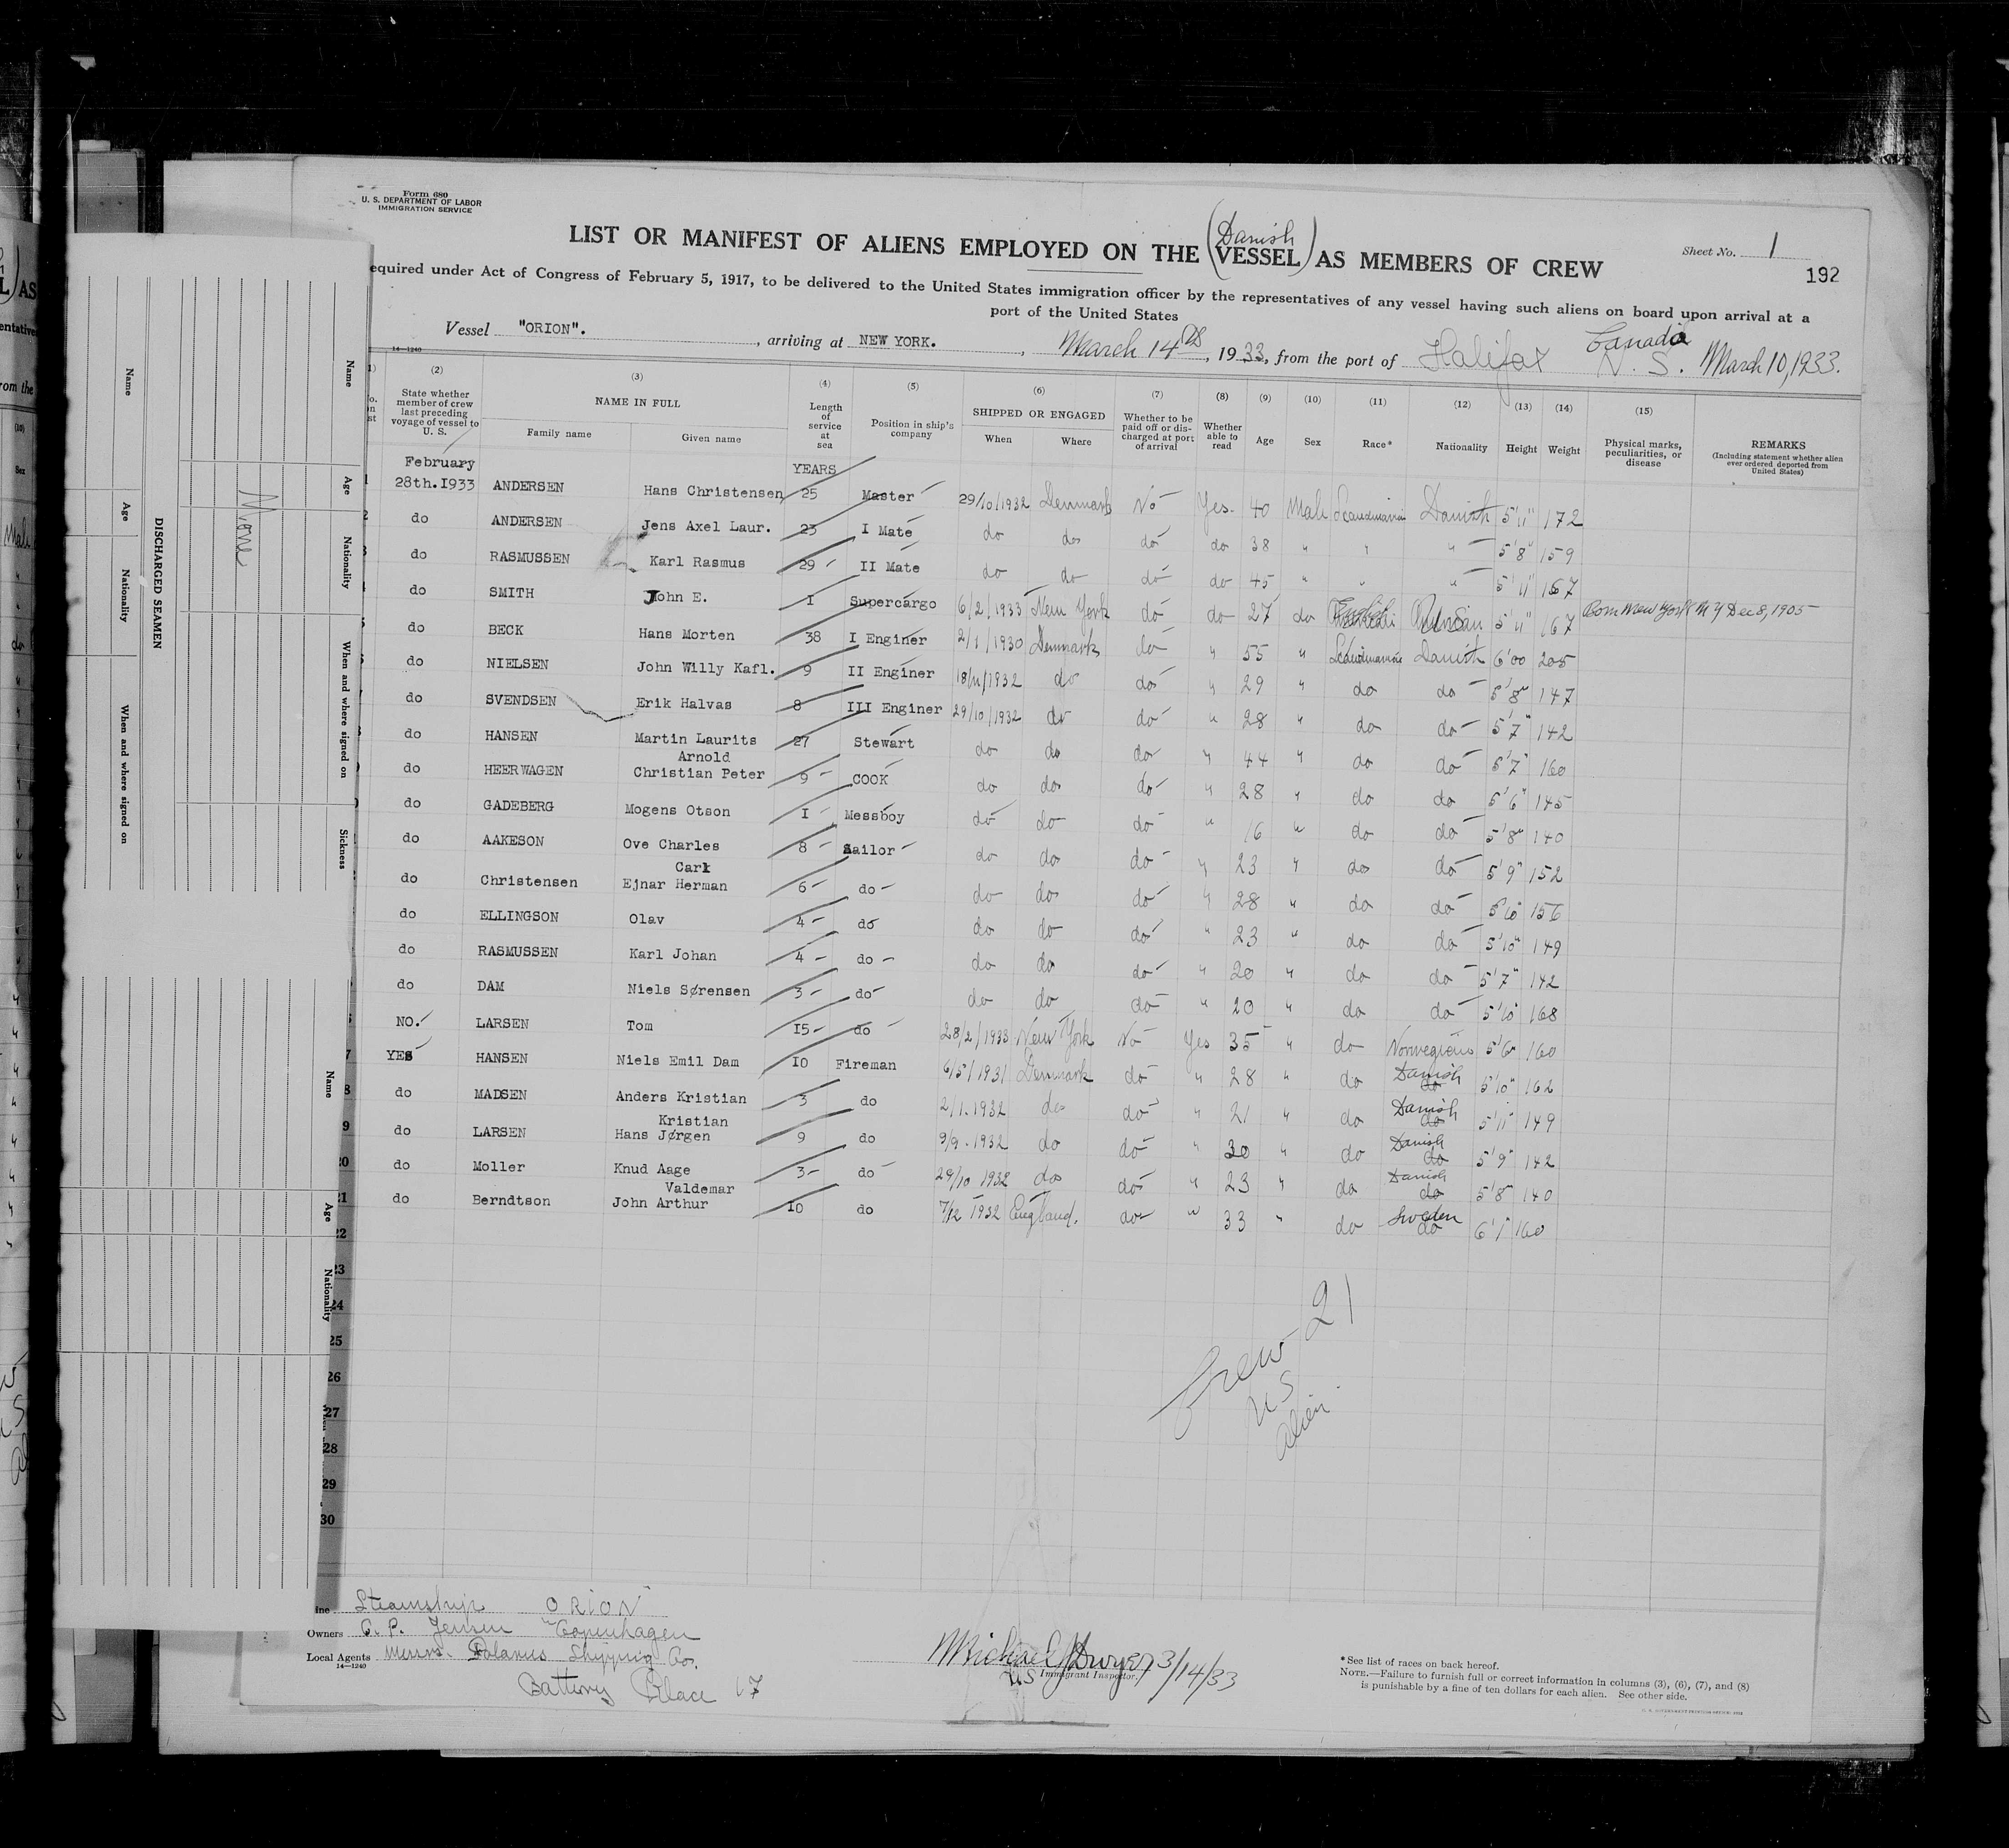 Form 680
U. S. DEPARTMENT OF LABOR
IMMIGRATION SERVICE
Sheet No. 1
192
LIST OR MANIFEST OF ALIENS EMPLOYED ON THE (Danish VESSEL) AS MEMBERS OF CREW
equired under Act of Congress of February 5, 1917, to be delivered to the United States immigration officer by the representatives of any vessel having such aliens on board upon arrival at a
port of the United States
Vessel "ORION". , arriving at NEW YORK. , March 14th, 1933, from the port of Halifax N. S. Canada March 10, 1933.
14—1240
(2) (3) (4) (5) (6) (7) (8) (9) (10) (11) (12) (13) (14) (15)
State whether member of crew last preceding voyage of vessel to U. S. NAME IN FULL Family name Given name Length of service at sea Position in ship's company SHIPPED OR ENGAGED When Where Whether to be paid off or discharged at port of arrival Whether able to read Age Sex Race* Nationality Height Weight Physical marks, peculiarities, or disease REMARKS (Including statement whether alien ever ordered deported from United States)
February YEARS
28th.1933 ANDERSEN Hans Christensen 25 Master 29/10/1932 Denmark No Yes 40 Male Scandinavian Danish 5'11" 172
do ANDERSEN Jens Axel Laur. 23 I Mate do do do do 38 " " " 5'8" 159
do RASMUSSEN Karl Rasmus 29 II Mate do do do do 45 " " " 5'11" 167
do SMITH John E. I Supercargo 6/2/1933 New York do do 27 do English 5'11" 167 Born New York N Y Dec 8, 1905
do BECK Hans Morten 38 I Enginer 2/1/1930 Denmark do " 55 " Scandinavian Danish 6'00 205
do NIELSEN John Willy Kafl. 9 II Enginer 18/11/1932 do do " 29 " do do 5'8" 147
do SVENDSEN Erik Halvas 8 III Enginer 29/10/1932 do do " 28 " do do 5'7" 142
do HANSEN Martin Laurits 27 Stewart do do do " 44 " do do 5'7" 160
do HEERWAGEN Arnold Christian Peter 9 COOK do do do " 28 " do do 5'6" 145
do GADEBERG Mogens Otson I Messboy do do do " 16 " do do 5'8" 140
do AAKESON Ove Charles 8 Sailor do do do " 23 " do do 5'9" 152
do Christensen Carl Ejnar Herman 6 do do do do " 28 " do do 5'10" 156
do ELLINGSON Olav 4 do do do do " 23 " do do 5'10" 149
do RASMUSSEN Karl Johan 4 do do do do " 20 " do do 5'7" 142
do DAM Niels Sørensen 3 do do do do " 20 " do do 5'10" 168
NO. LARSEN Tom 15 do 28/2/1933 New York No Yes 35 " do Norwegian 5'6" 160
YES HANSEN Niels Emil Dam 10 Fireman 6/5/1931 Denmark do " 28 " do Danish 5'10" 162
do MADSEN Anders Kristian 3 do 2/1.1932 do do " 21 " do Danish 5'11" 149
do LARSEN Kristian Hans Jørgen 9 do 9/9.1932 do do " 30 " do Danish 5'9" 142
do Moller Knud Aage 3 do 29/10 1932 do do " 23 " do Danish 5'8" 140
do Berndtson Valdemar John Arthur 10 do 7/12 1932 England. do " 33 " do Sweden 6'1" 160
22
23
24
25
26
27
28
29
30
Crew 21
US
alien
Steamship ORION
Owners C. P. Jensen Copenhagen
Local Agents Messrs. Shipping Co.
14—1240
Battery Place 17
Michael J Dwyer 3/14/33
US Immigrant Inspector.
*See list of races on back hereof.
NOTE.—Failure to furnish full or correct information in columns (3), (6), (7), and (8)
is punishable by a fine of ten dollars for each alien. See other side.
DISCHARGED SEAMEN
Name
Age
Nationality
When and where signed on
Name
Age
Nationality
When and where signed on
Sickness
None
Name
Age
Nationality